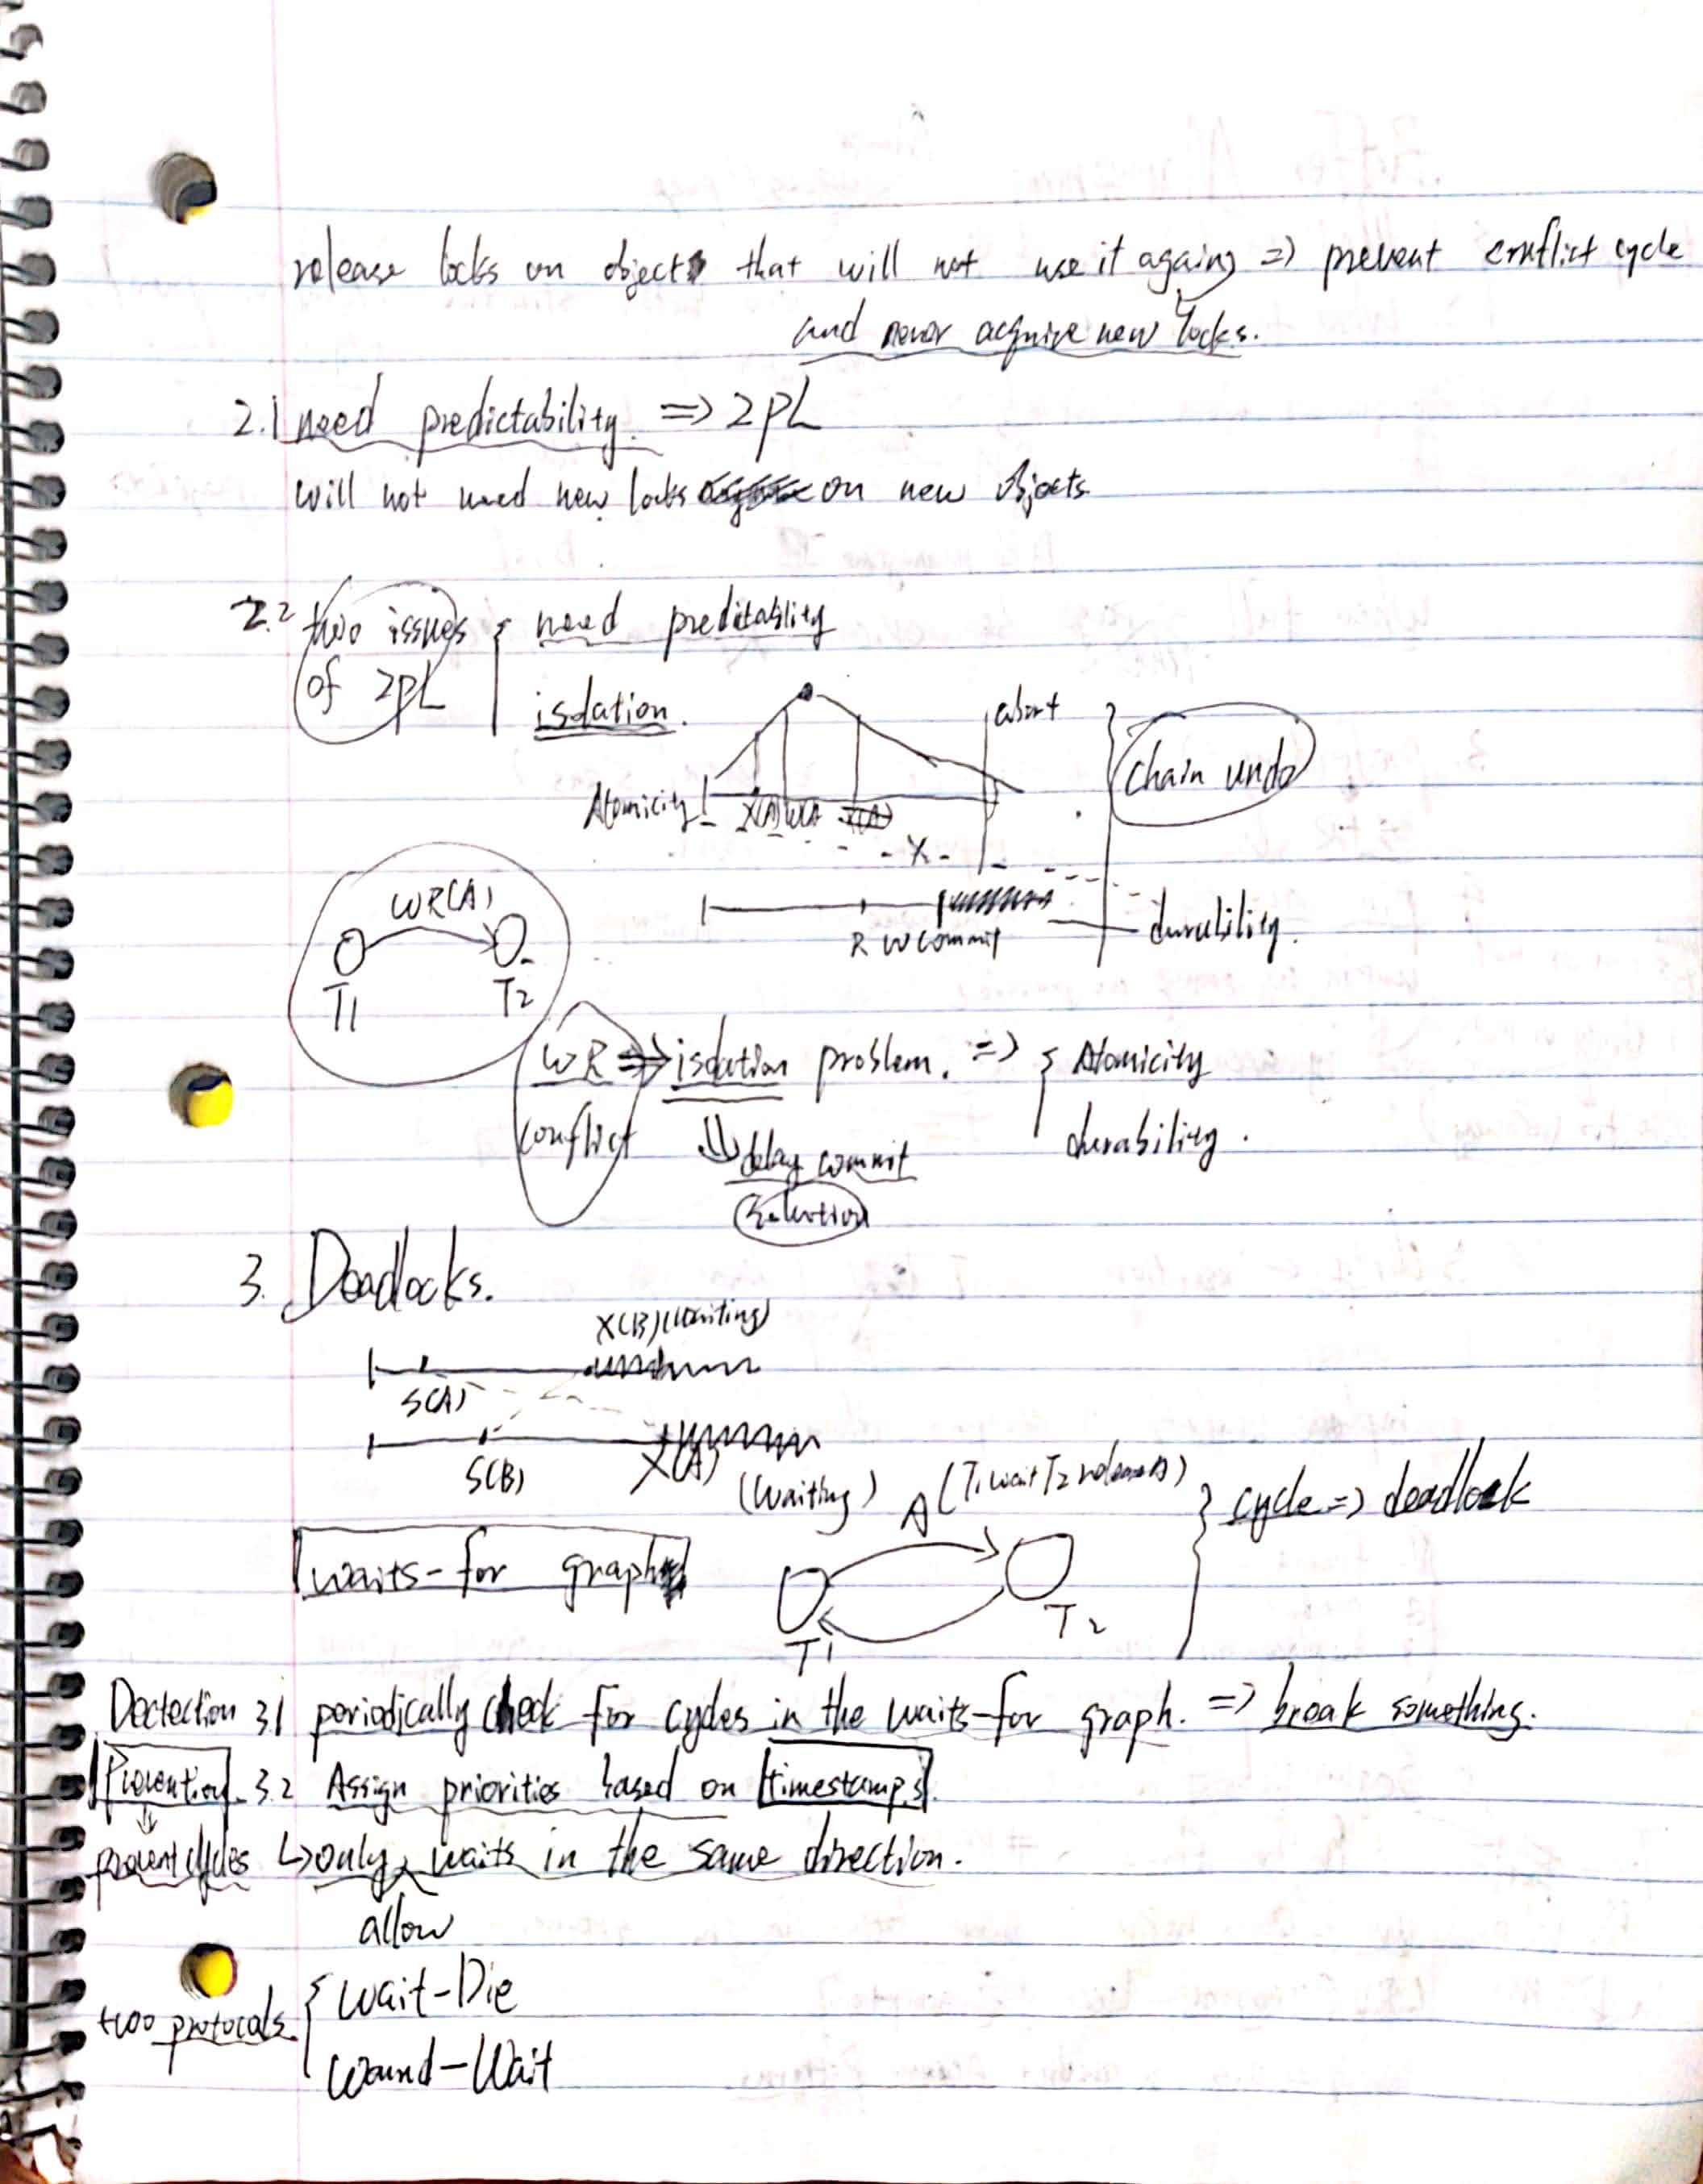 release locks on objects that will not use it again, => prevent conflict cycle
and never acquire new locks.
2.1 need predictability. => 2PL
will not need new locks on new objects.
2.2 two issues of 2PL { need preditability
isolation.
abort
Atomicity
X(A)
chain undo
- X -
R W commit
durability.
WR(A)
T1 T2
WR => isolation problem. => { Atomicity
conflict
durability.
delay commit
solution
3. Deadlocks.
X(B)(waiting)
S(A)
S(B) X(A) (waiting)
A (T1 wait T2 release A) } cycle => deadlock
waits-for graph
T1 T2
Dectection 3.1 periodically check for cycles in the waits-for graph. => break something.
Prevention 3.2 Assign priorities based on timestamps.
prevent cycles ↳ only allow waits in the same direction.
two protocals { wait-Die
Wound-Wait